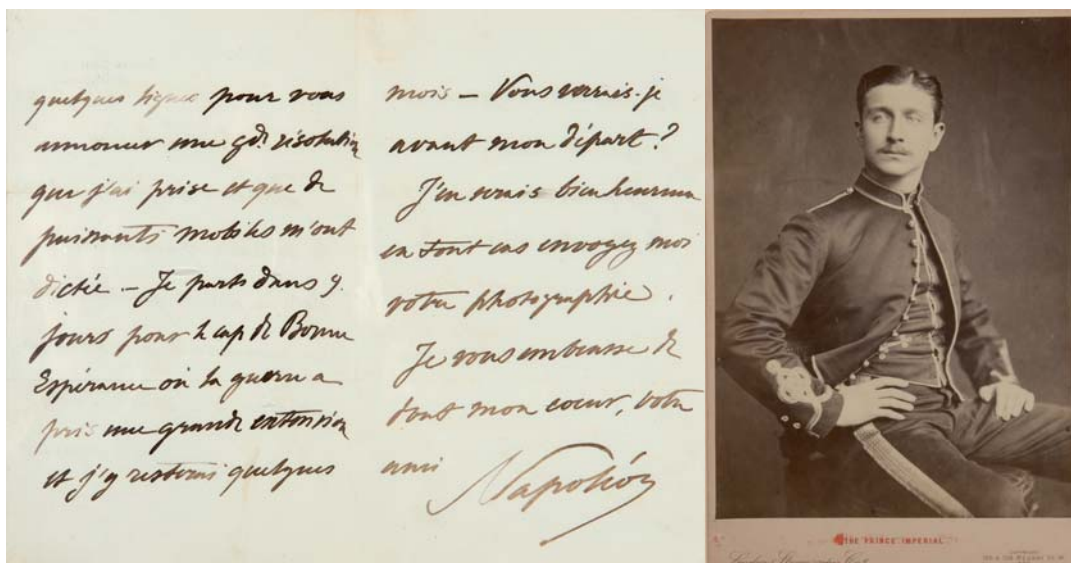 quelques lignes pour vous
annoncer une gde résolution
que j'ai prise et que de
puissants mobiles m'ont
dictée. – Je parts dans
jours pour le cap de Bonne
Espérance où la guerre a
pris une grande extension
et j'y resterai quelques
mois – Vous verrais-je
avant mon départ ?
J'en serais bien heureux
en tout cas envoyez moi
votre photographie.
Je vous embrasse de
tout mon coeur, votre
ami Napoléon
THE PRINCE IMPERIAL
London Stereoscopic Co
COPYRIGHT